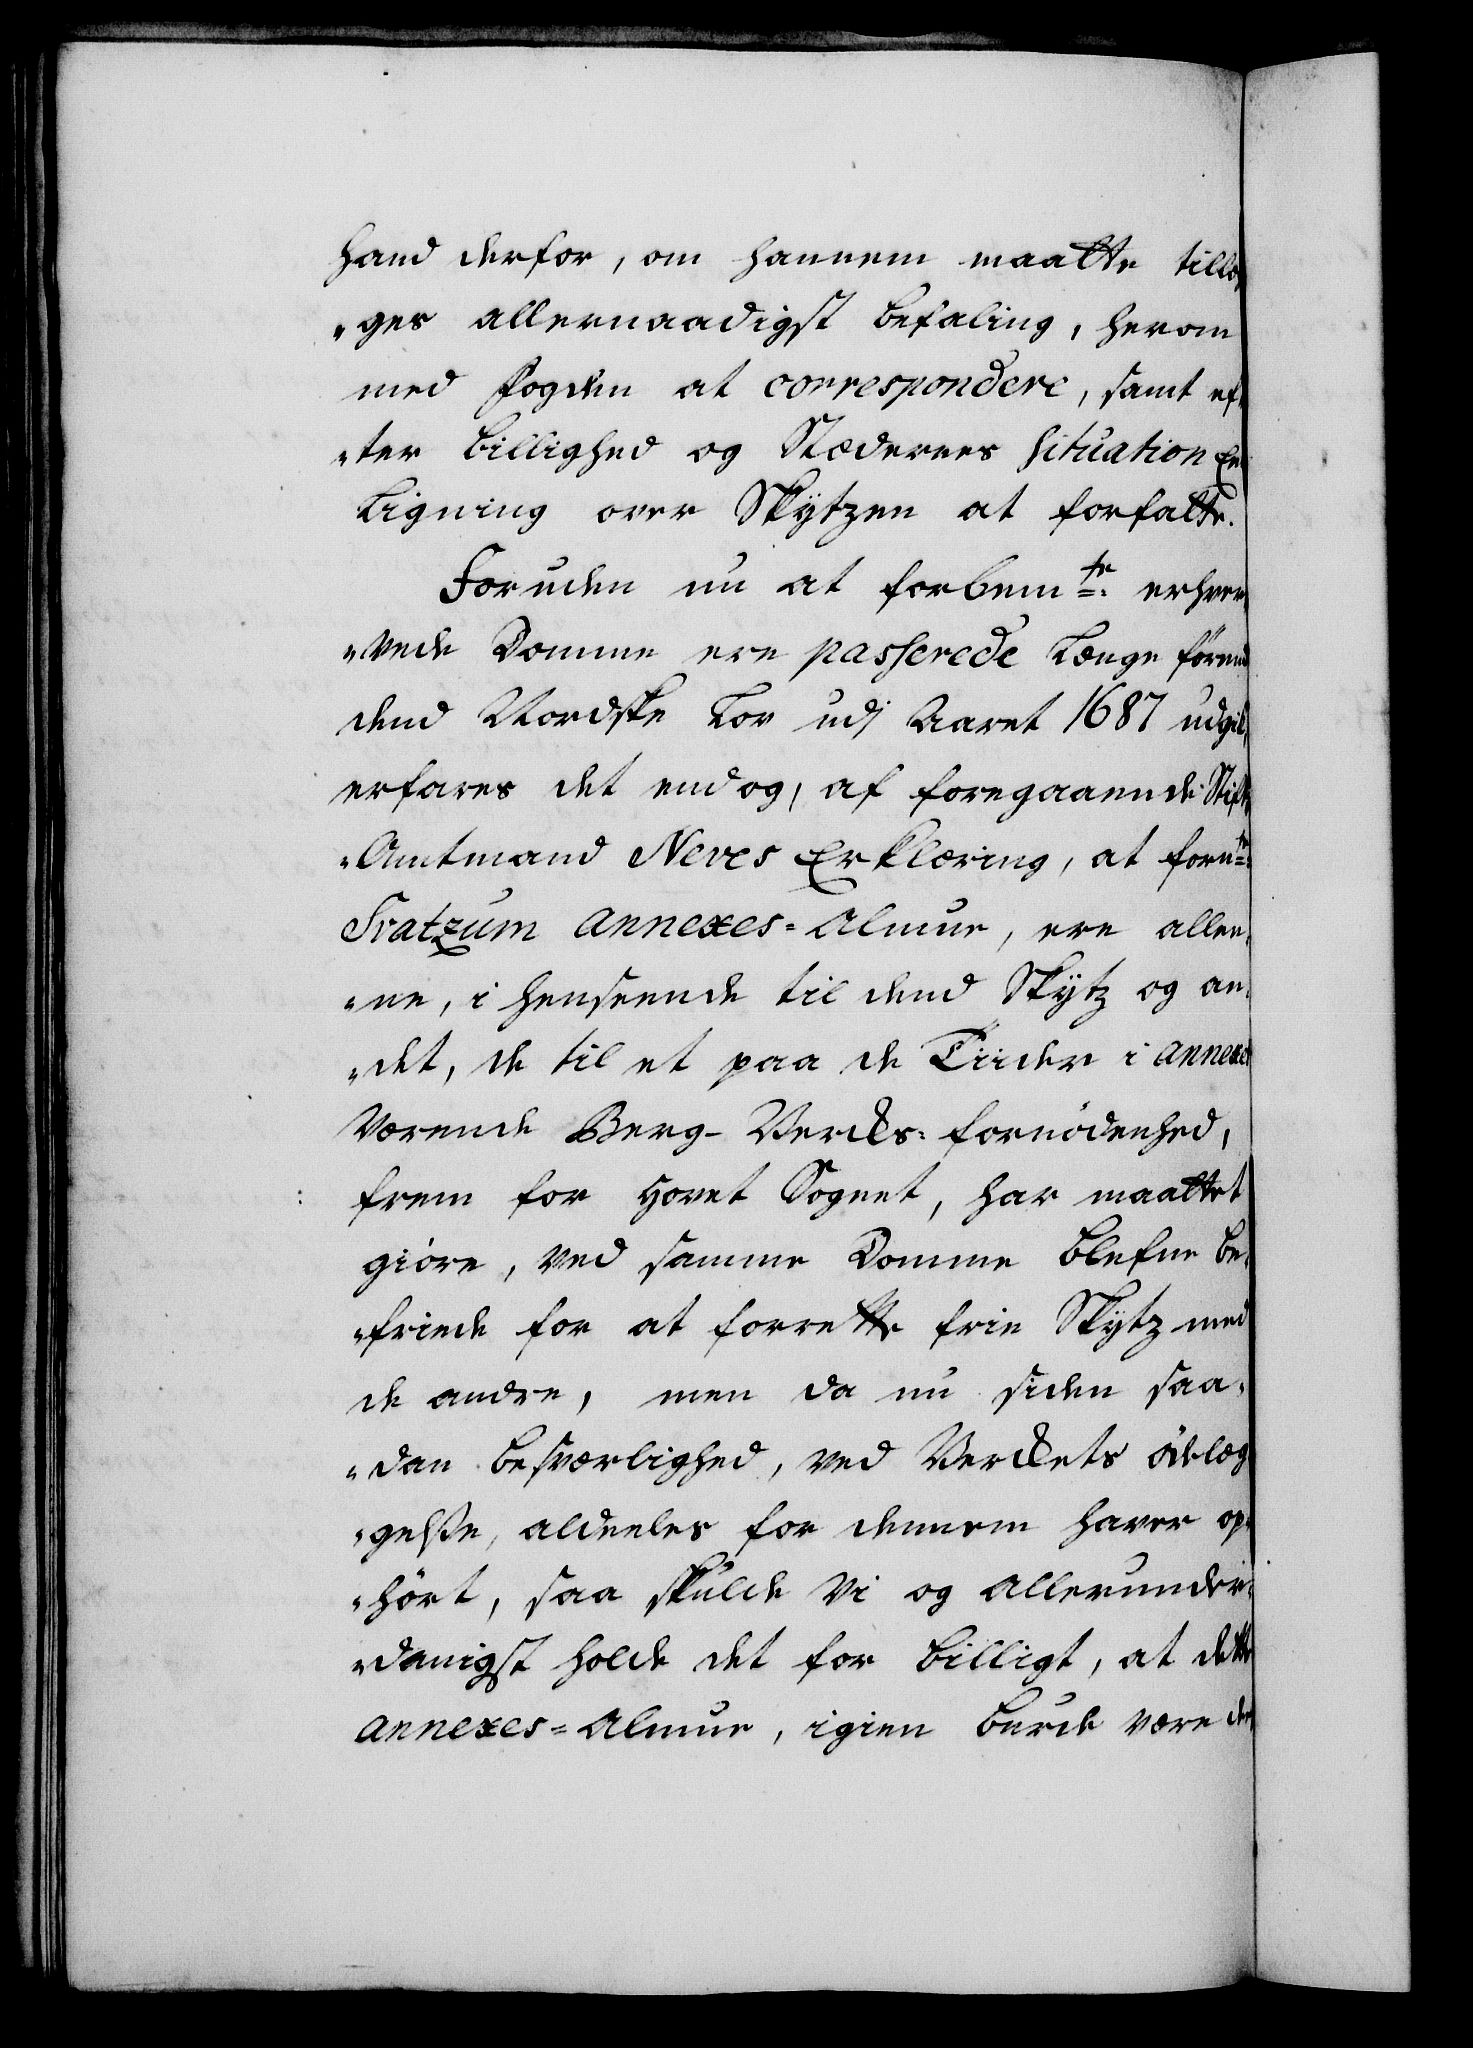 hand derfor, om hannem maatte tillæ
„ges allernaadigst befaling, herom
med Fogden at correspondere, samt ef„
„ter billighed og Stædernes Situation En
Ligning over Skytzen at forfatte.
Foruden nu at forbemte erhver„
„vede Domme ere passerede længe førend
dend Nordske Lov udj Aaret 1687 udgik,
erfares det endog, af foregaaende Stifts
„Amtmand Neves Erklæring, at fornte
Tratzum Annexes-Almue, ere allee„
„ne, i henseende til dend Skytz og an„
„det, de til et paa de Tiider i Annexet
Værende Berg-Verks-fornødenhed,
frem for Hovet Sognet, har maattet
giøre, ved samme Domme blefne be„
„friede for at forrette frie Skytz med
de andre, men da nu siden saa„
„dan besværlighed, ved Verkets ødelæg
„gelße, aldeeles for dennem haver op„
„hørt, saa skulde Vi og allerunder„
„danigst holde det for billigt, at dette
Annexes-Almue, igien burde være der